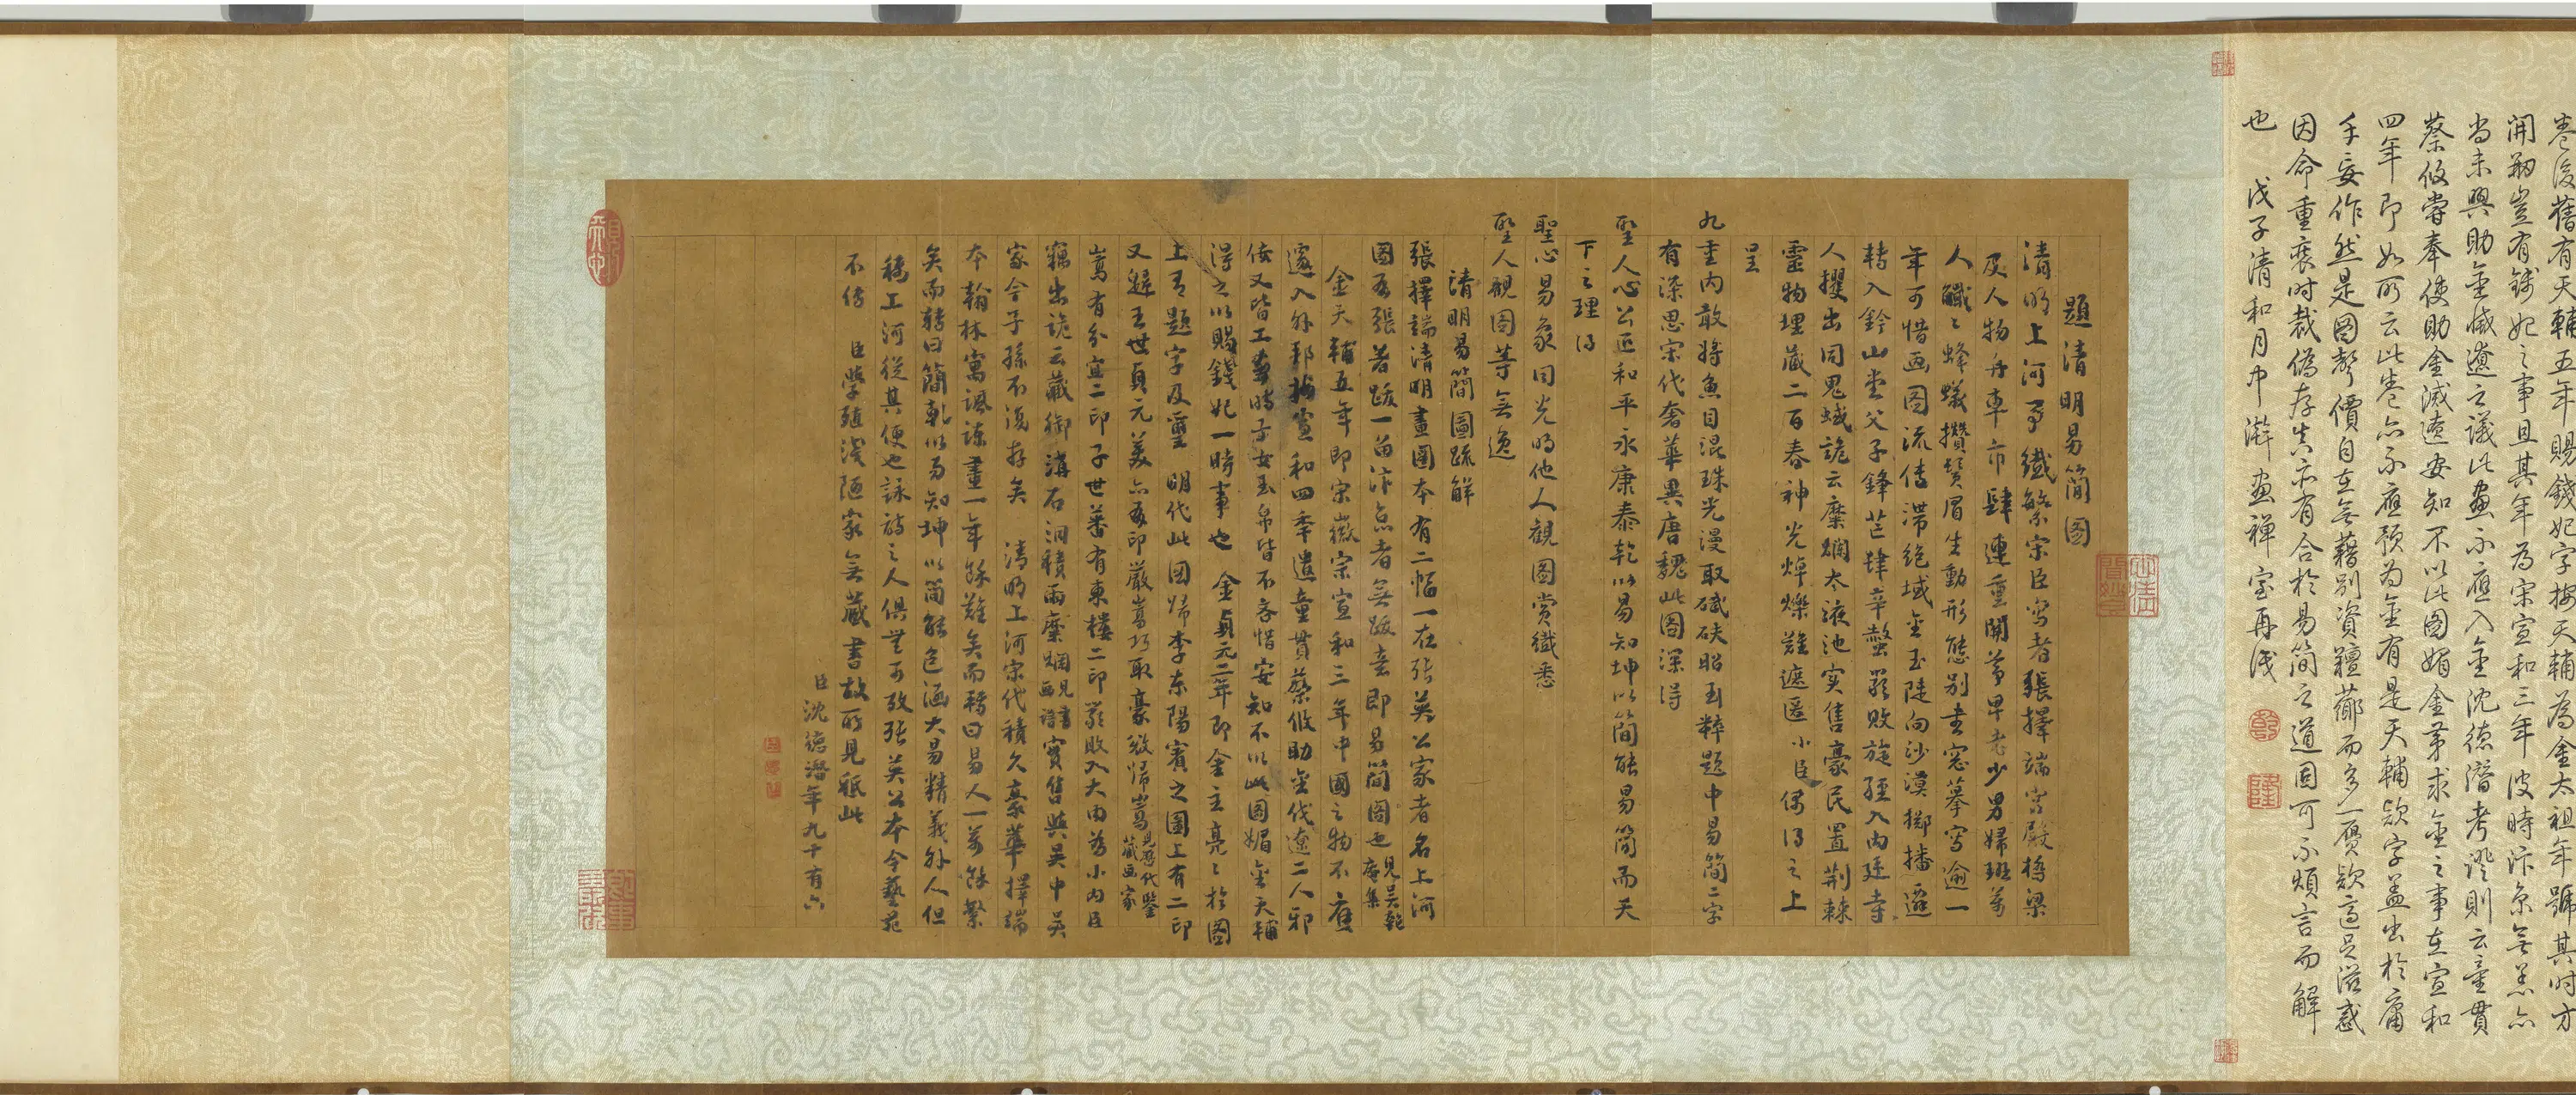 卷後舊有天輔五年賜錢妃字按天輔為金太祖年號其時方
開剏豈有錢妃之事且其年為宋宣和三年彼時汴京無恙亦
尚未興助金滅遼之議此畫不應入金沈德潛考證則云童貫
蔡攸嘗奉使助金滅遼安知不以此圖媚金第求金之事在宣和
四年即如所云此卷亦不應預為金有是天輔欵字盖出於庸
手妄作然是圖聲價自在無藉別資韁薌而多一贋欵適足滋惑
因命重裝時裁偽存真亦有合於易簡之道固可不煩言而解
也 戊子清和月中澣畫禪室再識
題清明易簡圖
清明上河事纖繁宋臣寫者張擇端宮殿橋梁
及人物舟車市肆連重關尊卑老少男婦班萬
人纖纖蜂蟻攢鬚眉生動形態別畫窓摹寫逾一
年可惜畫圖流傳滯絕域金玉陡向沙漠擲播遷
轉入鈐山堂父子鋒芒肆辛螫嚴敗旋經入內廷寺
人攫出同鬼蜮詭云糜爛太液池實售豪民置荆棘
靈物埋藏二百春神光焯爍難遮匿小臣偶得之上
呈
九重內敢將魚目混珠光漫取碔砆眙玉粹題中易簡二字
有深思宋代奢華異唐魏此圖深得
聖人心公正和平永康泰乾以易知坤以簡能易簡而天
下之理得
聖心易象同光明他人觀圖賞纖悉
聖人觀圖等無逸
清明易簡圖疏解
張擇端清明畫圖本有二幅一在張英公家者名上河
圖有張著跋一留汴京者無跋志即易簡圖也見吳乾庵集
金天輔五年即宋徽宗宣和三年中國之物不應
遽入外邦按宣和四年遣童貫蔡攸助金伐遼二人邪
佞又皆工畫時子女玉帛皆不吝惜安知不以此圖媚金天輔
得之以賜錢妃一時事也 金貞元二年即金主亮亮於圖
上有題字及璽 明代此圖歸李東陽賓之圖上有二印
又歸王世貞元美亦有印嚴嵩巧取豪徵歸嵩見歷代鑒藏畫家
嵩有分宜二印子世蕃有東樓二印嚴敗入大內為小內臣
竊出詭云藏御溝石洞積雨糜爛見書畫譜實售與吳中吳
家今子孫不復存矣 清明上河宋代積久豪華擇端
本翰林寓諷諫畫一年餘難矣而轉曰易人一萬餘繁
矣而轉曰簡乾以易知坤以簡能包涵大易精義外人但
稱上河從其便也詠詩之人俱無可攷張英公本今藝苑
不傳 臣學殖淺陋家無藏書故所見祇此
臣沈德潛年九十有六